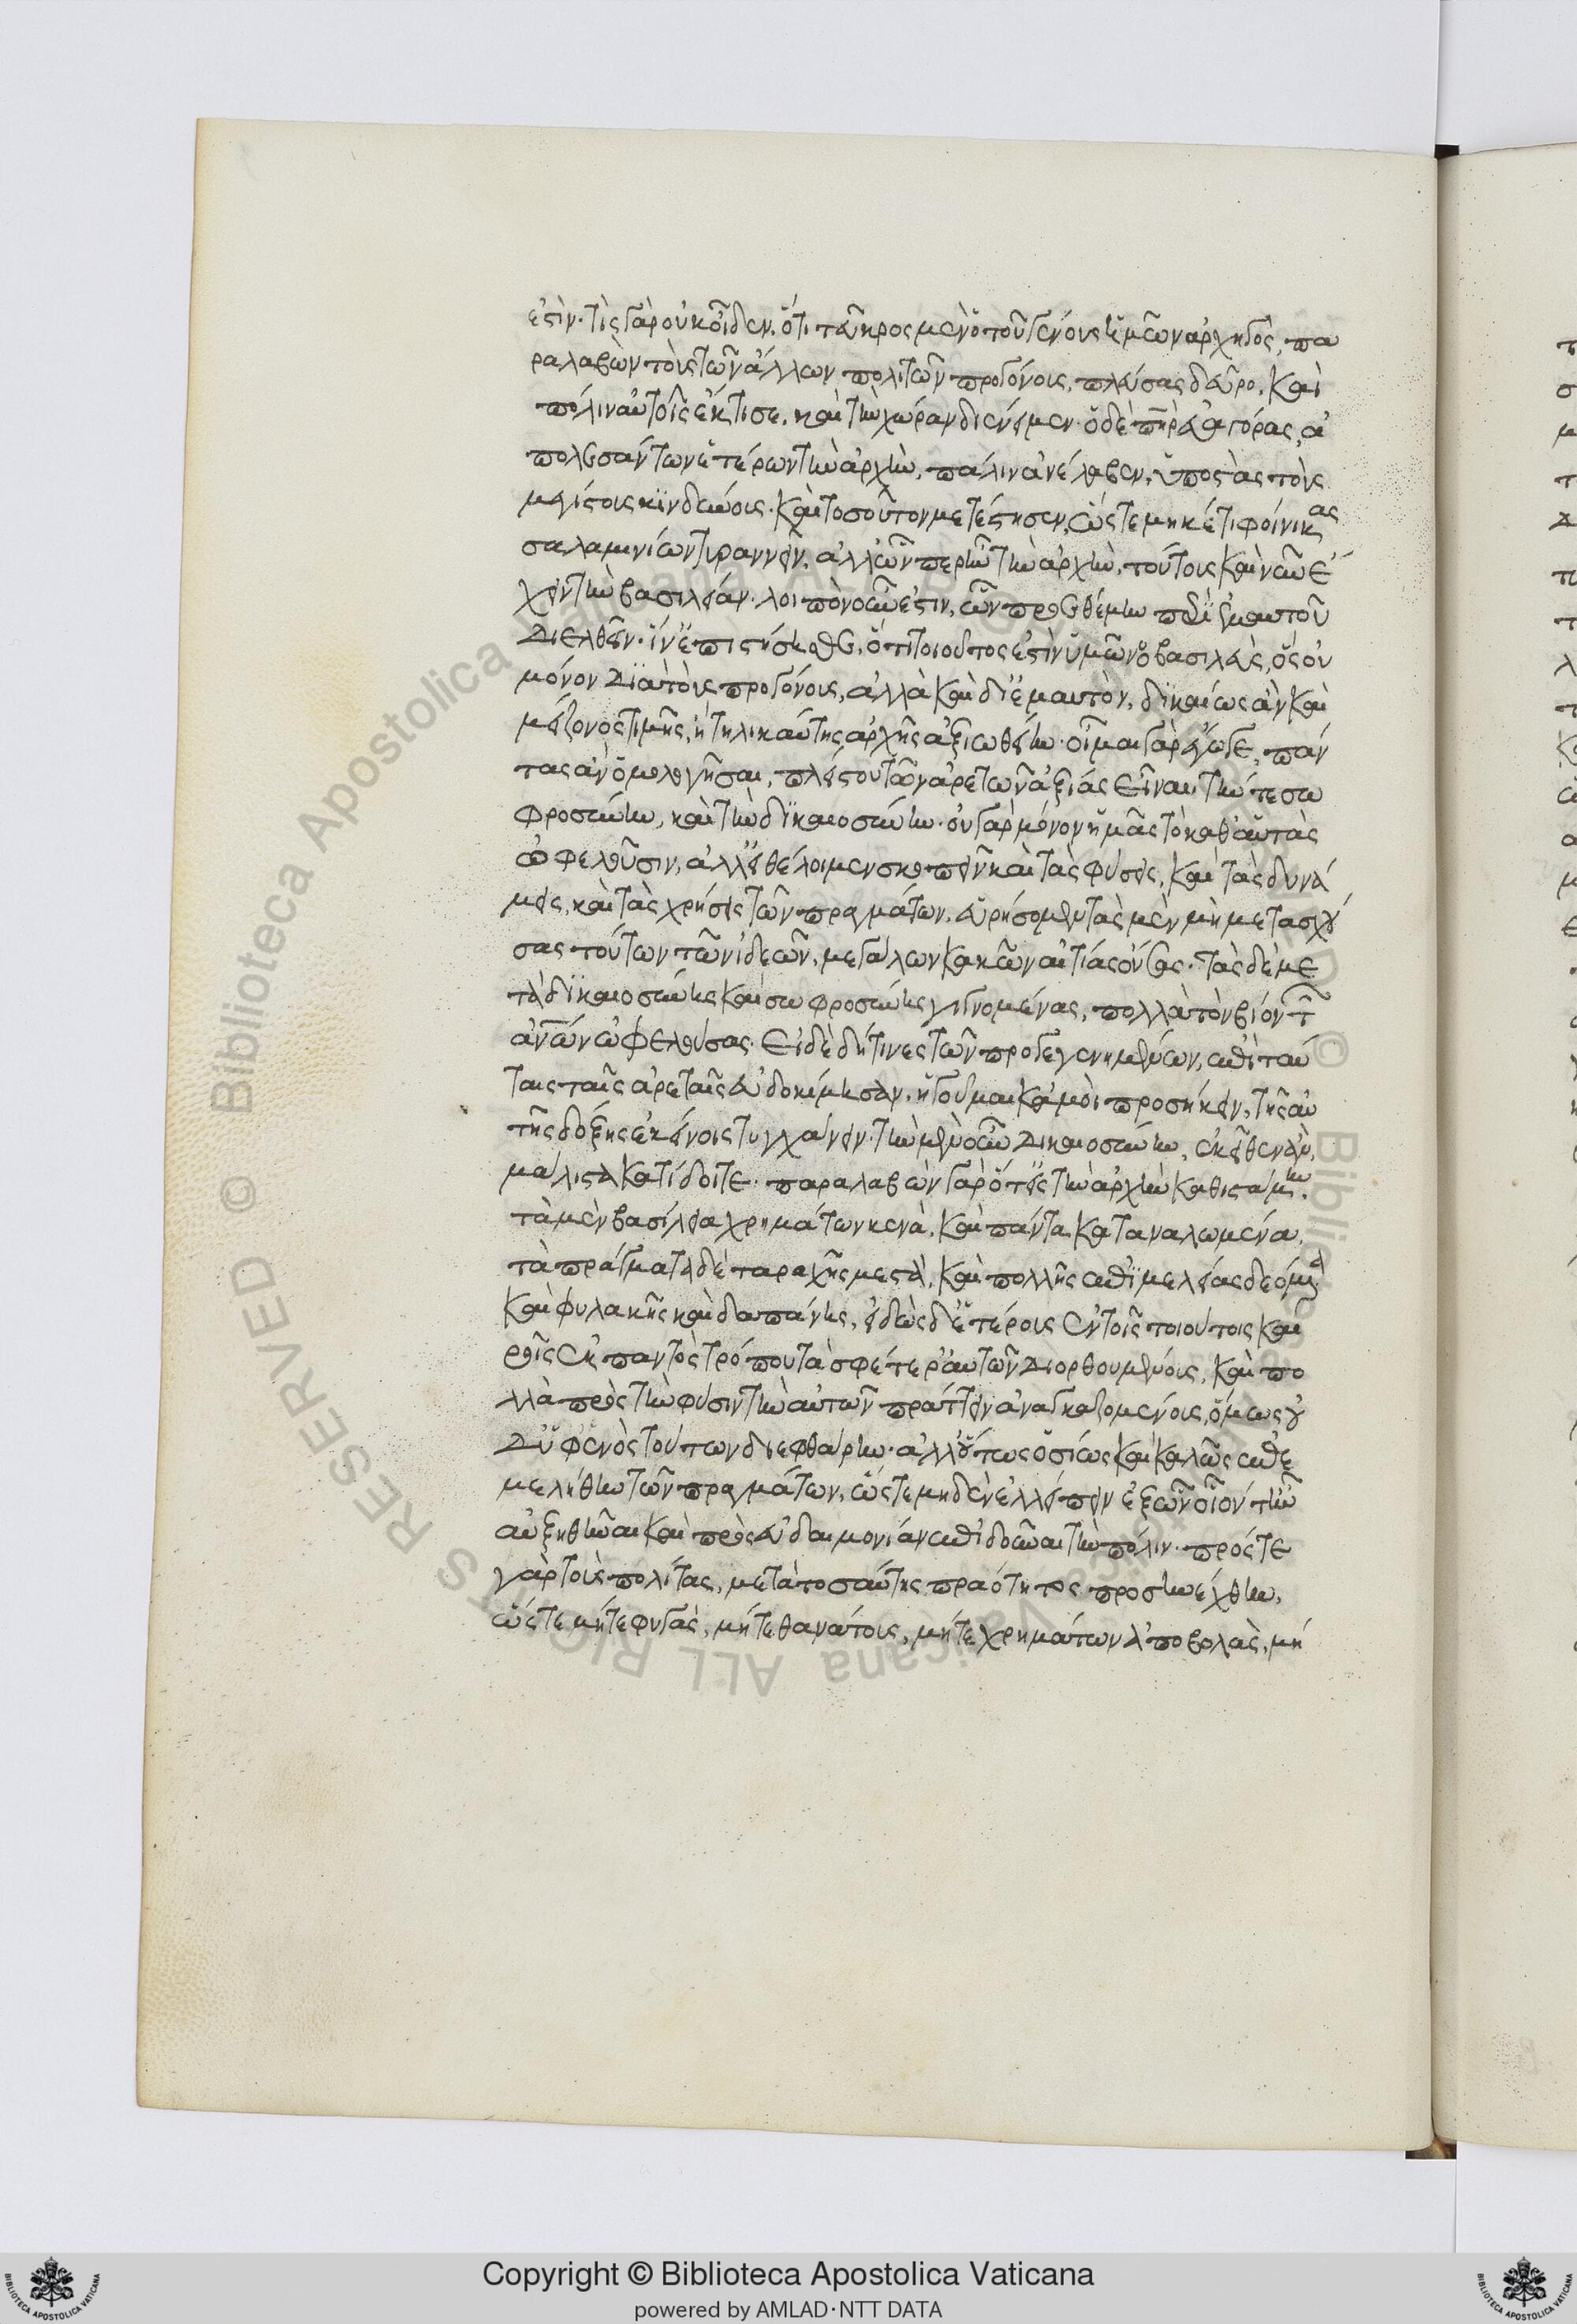 ἐστὶν. τίς γὰρ οὐκ οἶδεν, ὅτι τεῦκρος μὲν ὁ τοῦ γένους ἡμῶν ἀρχηγὸς, πα
ραλαβὼν τοὺς τῶν ἄλλων πολιτῶν προγόνους, πλεύσας δεῦρο, καὶ
πόλιν αὐτοῖς ἔκτισε, καὶ τὴν χώραν διένειμεν. ὁ δὲ πηρ εὐαγόρας, ἀ
πολεσάντων ἑτέρων τὴν ἀρχὴν, πάλιν ἀνέλαβεν, ὑποστὰς τοὺς
μεγίστους κινδύνους. καὶ τοσοῦτον μετέστησεν, ὥστε μηκέτι φοίνικας
σαλαμινίων τυραννεῖν, ἀλλ' ὧν περ ἦν τὴν ἀρχὴν, τούτους καὶ νῦν ἔ
χειν τὴν βασιλείαν. λοιπὸν οὖν ἐστιν, ὧν προεθέμην περὶ ἐμαυτοῦ
διελθεῖν. ἵν' ἐπιστήσησθε, ὅτι τοιοῦτος ἐστὶν ὑμῶν ὁ βασιλεὺς, ὃς οὐ
μόνον διὰ τοὺς προγόνους, ἀλλὰ καὶ δι' ἐμαυτὸν, δικαίως ἂν καὶ
μείζονος τιμῆς, ἢ τηλικαύτης ἀρχῆς ἀξιωθείην. οἶμαι γὰρ ἔγωγε, πάν
τας ἂν ὁμολογῆσαι, πλείστου τῶν ἀρετῶν ἀξίας εἶναι τήν τε σω
φροσύνην, καὶ τὴν δικαιοσύνην. οὐ γὰρ μόνον ἡμᾶς τὸ καθ' αὑτὰς
ὠφελοῦσιν, ἀλλ' εἰ θέλοιμεν σκοπεῖν καὶ τὰς φύσεις, καὶ τὰς δυνά
μεις, καὶ τὰς χρήσεις τῶν πραγμάτων, εὑρήσομεν τὰς μὲν μὴ μετασχού
σας τούτων τῶν ἰδεῶν, μεγάλων κακῶν αἰτίας οὔσας. τὰς δὲ με
τὰ δικαιοσύνης καὶ σωφροσύνης γιγνομένας, πολλὰ τὸν βίον τ
ἀνῶν ὠφελούσας. εἰ δὲ δή τινες τῶν προγεγενημένων, ἐπὶ ταύ
ταις ταῖς ἀρεταῖς εὐδοκίμησαν, ἡγοῦμαι κἀμοὶ προσήκειν, τῆς αὐ
τῆς δόξης ἐκείνοις τυγχάνειν. τὴν μὲν οὖν δικαιοσύνην, ἐκεῖθεν ἂν
μάλιστα κατίδοιτε. παραλαβὼν γὰρ ὅτ' εἰς τὴν ἀρχὴν καθιστάμην,
τὰ μὲν βασίλεια χρημάτων κενὰ, καὶ πάντα καταναλωμένα,
τὰ πράγματα δὲ ταραχῆς μεστὰ, καὶ πολλῆς ἐπιμελείας δεόμενα
καὶ φυλακῆς καὶ δαπάνης, εἰδὼς δ' ἑτέρους ἐν τοῖς τοιούτοις και
ροῖς ἐκ παντὸς τρόπου τὰ σφέτερ' αὐτῶν διορθουμένους, καὶ πο
λλὰ πρὸς τὴν φύσιν τὴν αὑτῶν πράττειν ἀναγκαζομένους, ὅμως οὐ
δ' ὑφ' ἑνὸς τούτων διεφθάρην. ἀλλ' οὕτως ὁσίως καὶ καλῶς ἐπε
μελήθην τῶν πραγμάτων, ὥστε μηδὲν ἐλλείπειν ἐξ ὧν οἷόν τ' ἦν
αὐξηθῆναι καὶ πρὸς εὐδαιμονίαν ἐπιδοῦναι τὴν πόλιν. πρός τε
γὰρ τοὺς πολίτας, μετὰ τοσαύτης πραότητος προσηνέχθην,
ὥστε μήτε φυγὰς, μήτε θανάτους, μήτε χρημάτων ἀποβολὰς, μή
Copyright © Biblioteca Apostolica Vaticana
powered by AMLAD·NTT DATA